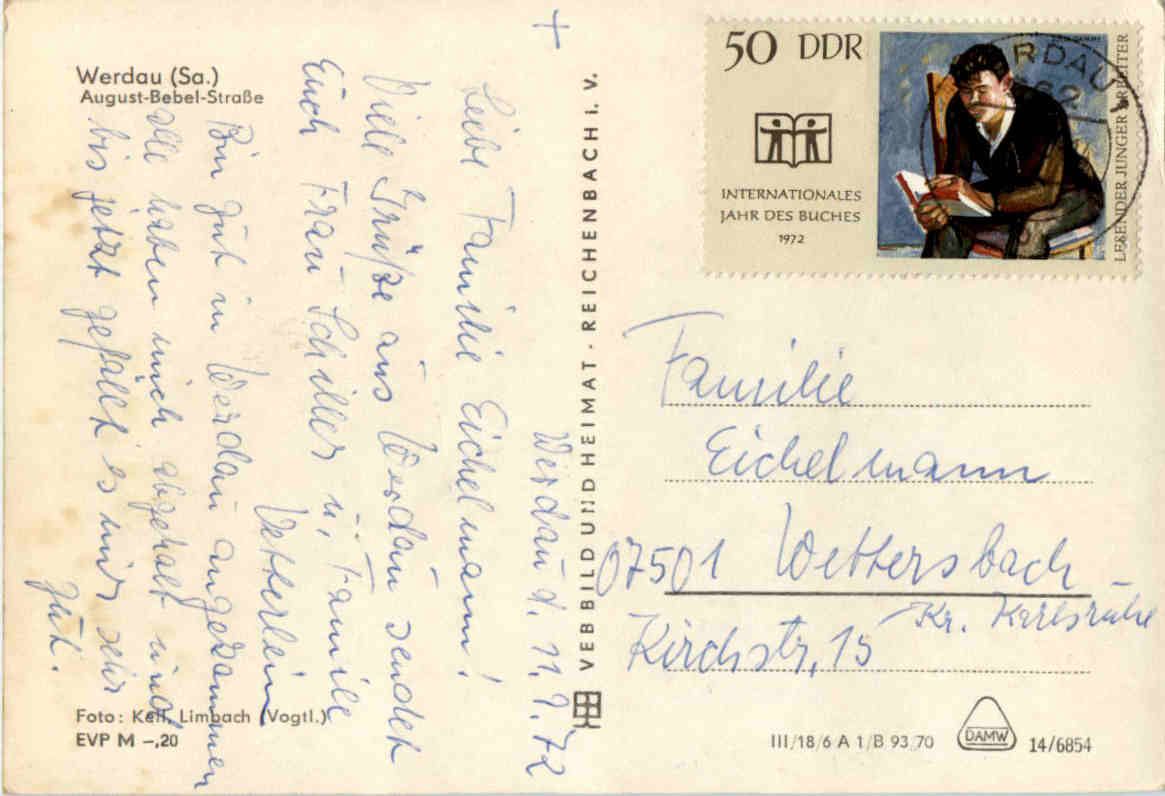 Werdau (Sa.)
August-Bebel-Straße
Werdau d. 11.9.72
Liebe Familie Eichelmann!
Viele Grüße aus Werdau sendet
Euch Frau Schiller u. Familie
Vetterlein
Bin gut in Werdau angekommen
alle haben mich abgeholt und
bis jetzt gefällt es mir sehr
gut.
Foto: Keil, Limbach (Vogtl.)
EVP M –,20
VEB BILD UND HEIMAT · REICHENBACH I. V.
50 DDR
INTERNATIONALES
JAHR DES BUCHES
1972
LESENDER JUNGER ARBEITER
WERDAU
Familie
Eichelmann
07501 Wettersbach –
Kr. Karlsruhe
Kirchstr. 15
III/18/6 A 1/B 93/70
DAMW
14/6854